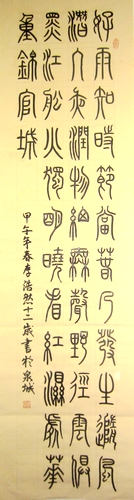 好雨知時節當春乃發生隨風
潛入夜潤物細無聲野徑雲俱
黑江船火燭明曉看紅濕處華
重錦官城
甲午年春李浩然十二歲書於泉城